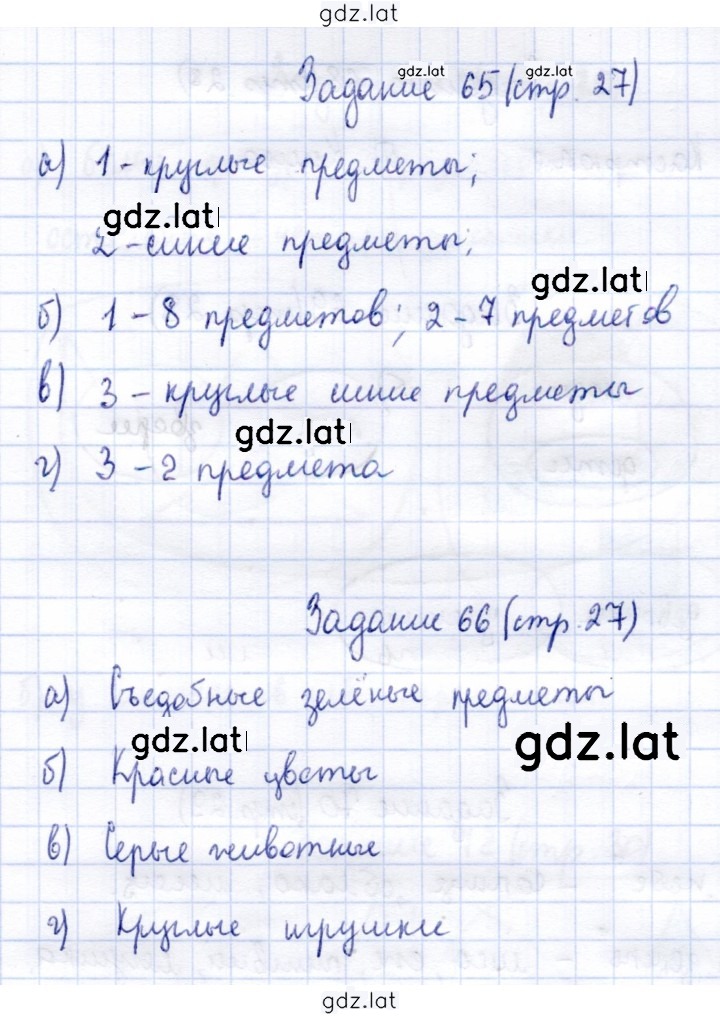 gdz.lat
Задание 65 (стр. 27)
gdz.lat gdz.lat
а) 1 - круглые предметы;
gdz.lat
2 - синие предметы;
gdz.lat
б) 1 - 8 предметов; 2 - 7 предметов
в) 3 - круглые синие предметы
gdz.lat
г) 3 - 2 предмета
Задание 66 (стр. 27)
а) Съедобные зелёные предметы
gdz.lat gdz.lat
б) Красные цветы
в) Серые животные
г) Круглые игрушки
gdz.lat